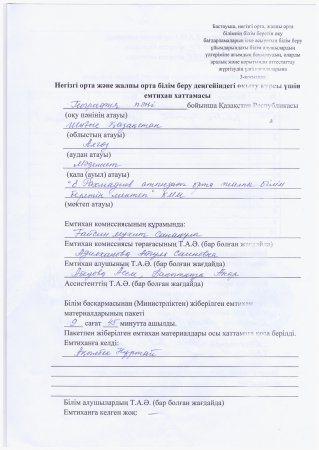 Бастауыш, негізгі орта, жалпы орта
білімнің білім беретін оқу
бағдарламаларын іске асыратын білім беру
ұйымдарындағы білім алушылардың
үлгеріміне ағымдық бақылаудың, оларды
аралық және қорытынды аттестаттау
жүргізудің үлгі қағидаларына
3-қосымша
Негізгі орта және жалпы орта білім беру деңгейіндегі оқыту курсы үшін
емтихан хаттамасы
География пәні бойынша Қазақстан Республикасы
(оқу пәнінің атауы)
Шығыс Қазақстан
(облыстың атауы)
(аудан атауы)
(қала (ауыл) атауы)
орта жалпы білім
беретін мектеп КММ
(мектеп атауы)
Емтихан комиссиясының құрамында:
Емтихан комиссиясы төрағасының Т.А.Ә. (бар болған жағдайда)
Емтихан алушының Т.А.Ә. (бар болған жағдайда)
Ассистенттің Т.А.Ә. (бар болған жағдайда)
Білім басқармасынан (Министрліктен) жіберілген емтихан
материалдарының пакеті
9 сағат 45 минутта ашылды.
Пакетпен жіберілген емтихан материалдары осы хаттамаға қоса берілді.
Емтиханға келді:
Білім алушылардың Т.А.Ә. (бар болған жағдайда)
Емтиханға келген жоқ: